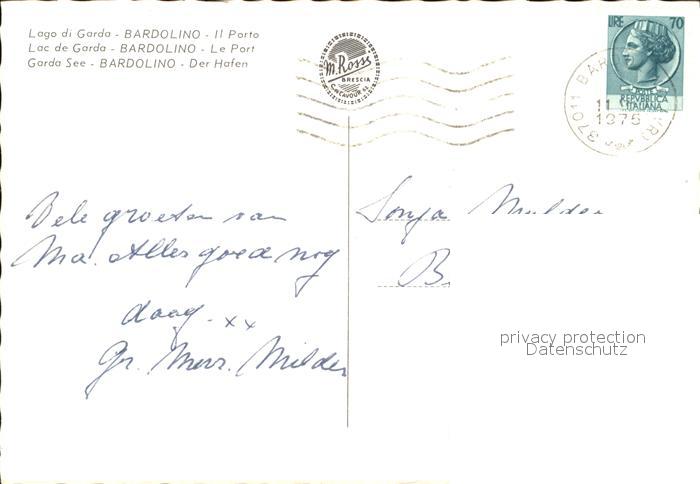 Lago di Garda - BARDOLINO - Il Porto
Lac de Garda - BARDOLINO - Le Port
Garda See - BARDOLINO - Der Hafen
M. Rossi
BRESCIA
C. CAVOUR
LIRE 70
REPVBBLICA
ITALIANA
37011 BAR
11
1975
Vele groeten van
Ma. Alles goed nog
daag. xx
Gr. Mevr. Mulder
Sonja Mulder
B.
privacy protection
Datenschutz